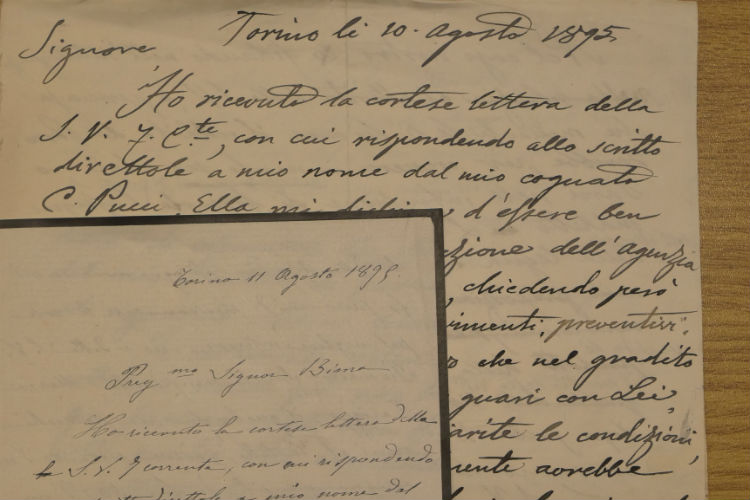 Torino li 10. Agosto 1895
Signore
Ho ricevuto la cortese lettera della
S. V. 7. C.te, con cui rispondendo allo scritto
direttole a mio nome dal mio cognato
C. Pucci, Ella mi dichiara d'essere ben
zione dell'agenzia
, chiedendo però
rimenti, preventivi,
o che nel gradito
guari con Lei,
arite le condizioni,
mente dovrebbe
Torino 11 Agosto 1895.
Preg.mo Signor Bima
Ho ricevuto la cortese lettera della
S. V. 7 corrente, con cui rispondendo
direttole a mio nome dal